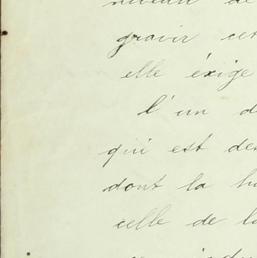 niveau de
gravir cet
elle éxige
l'un d
qui est de
dont la hu
celle de la